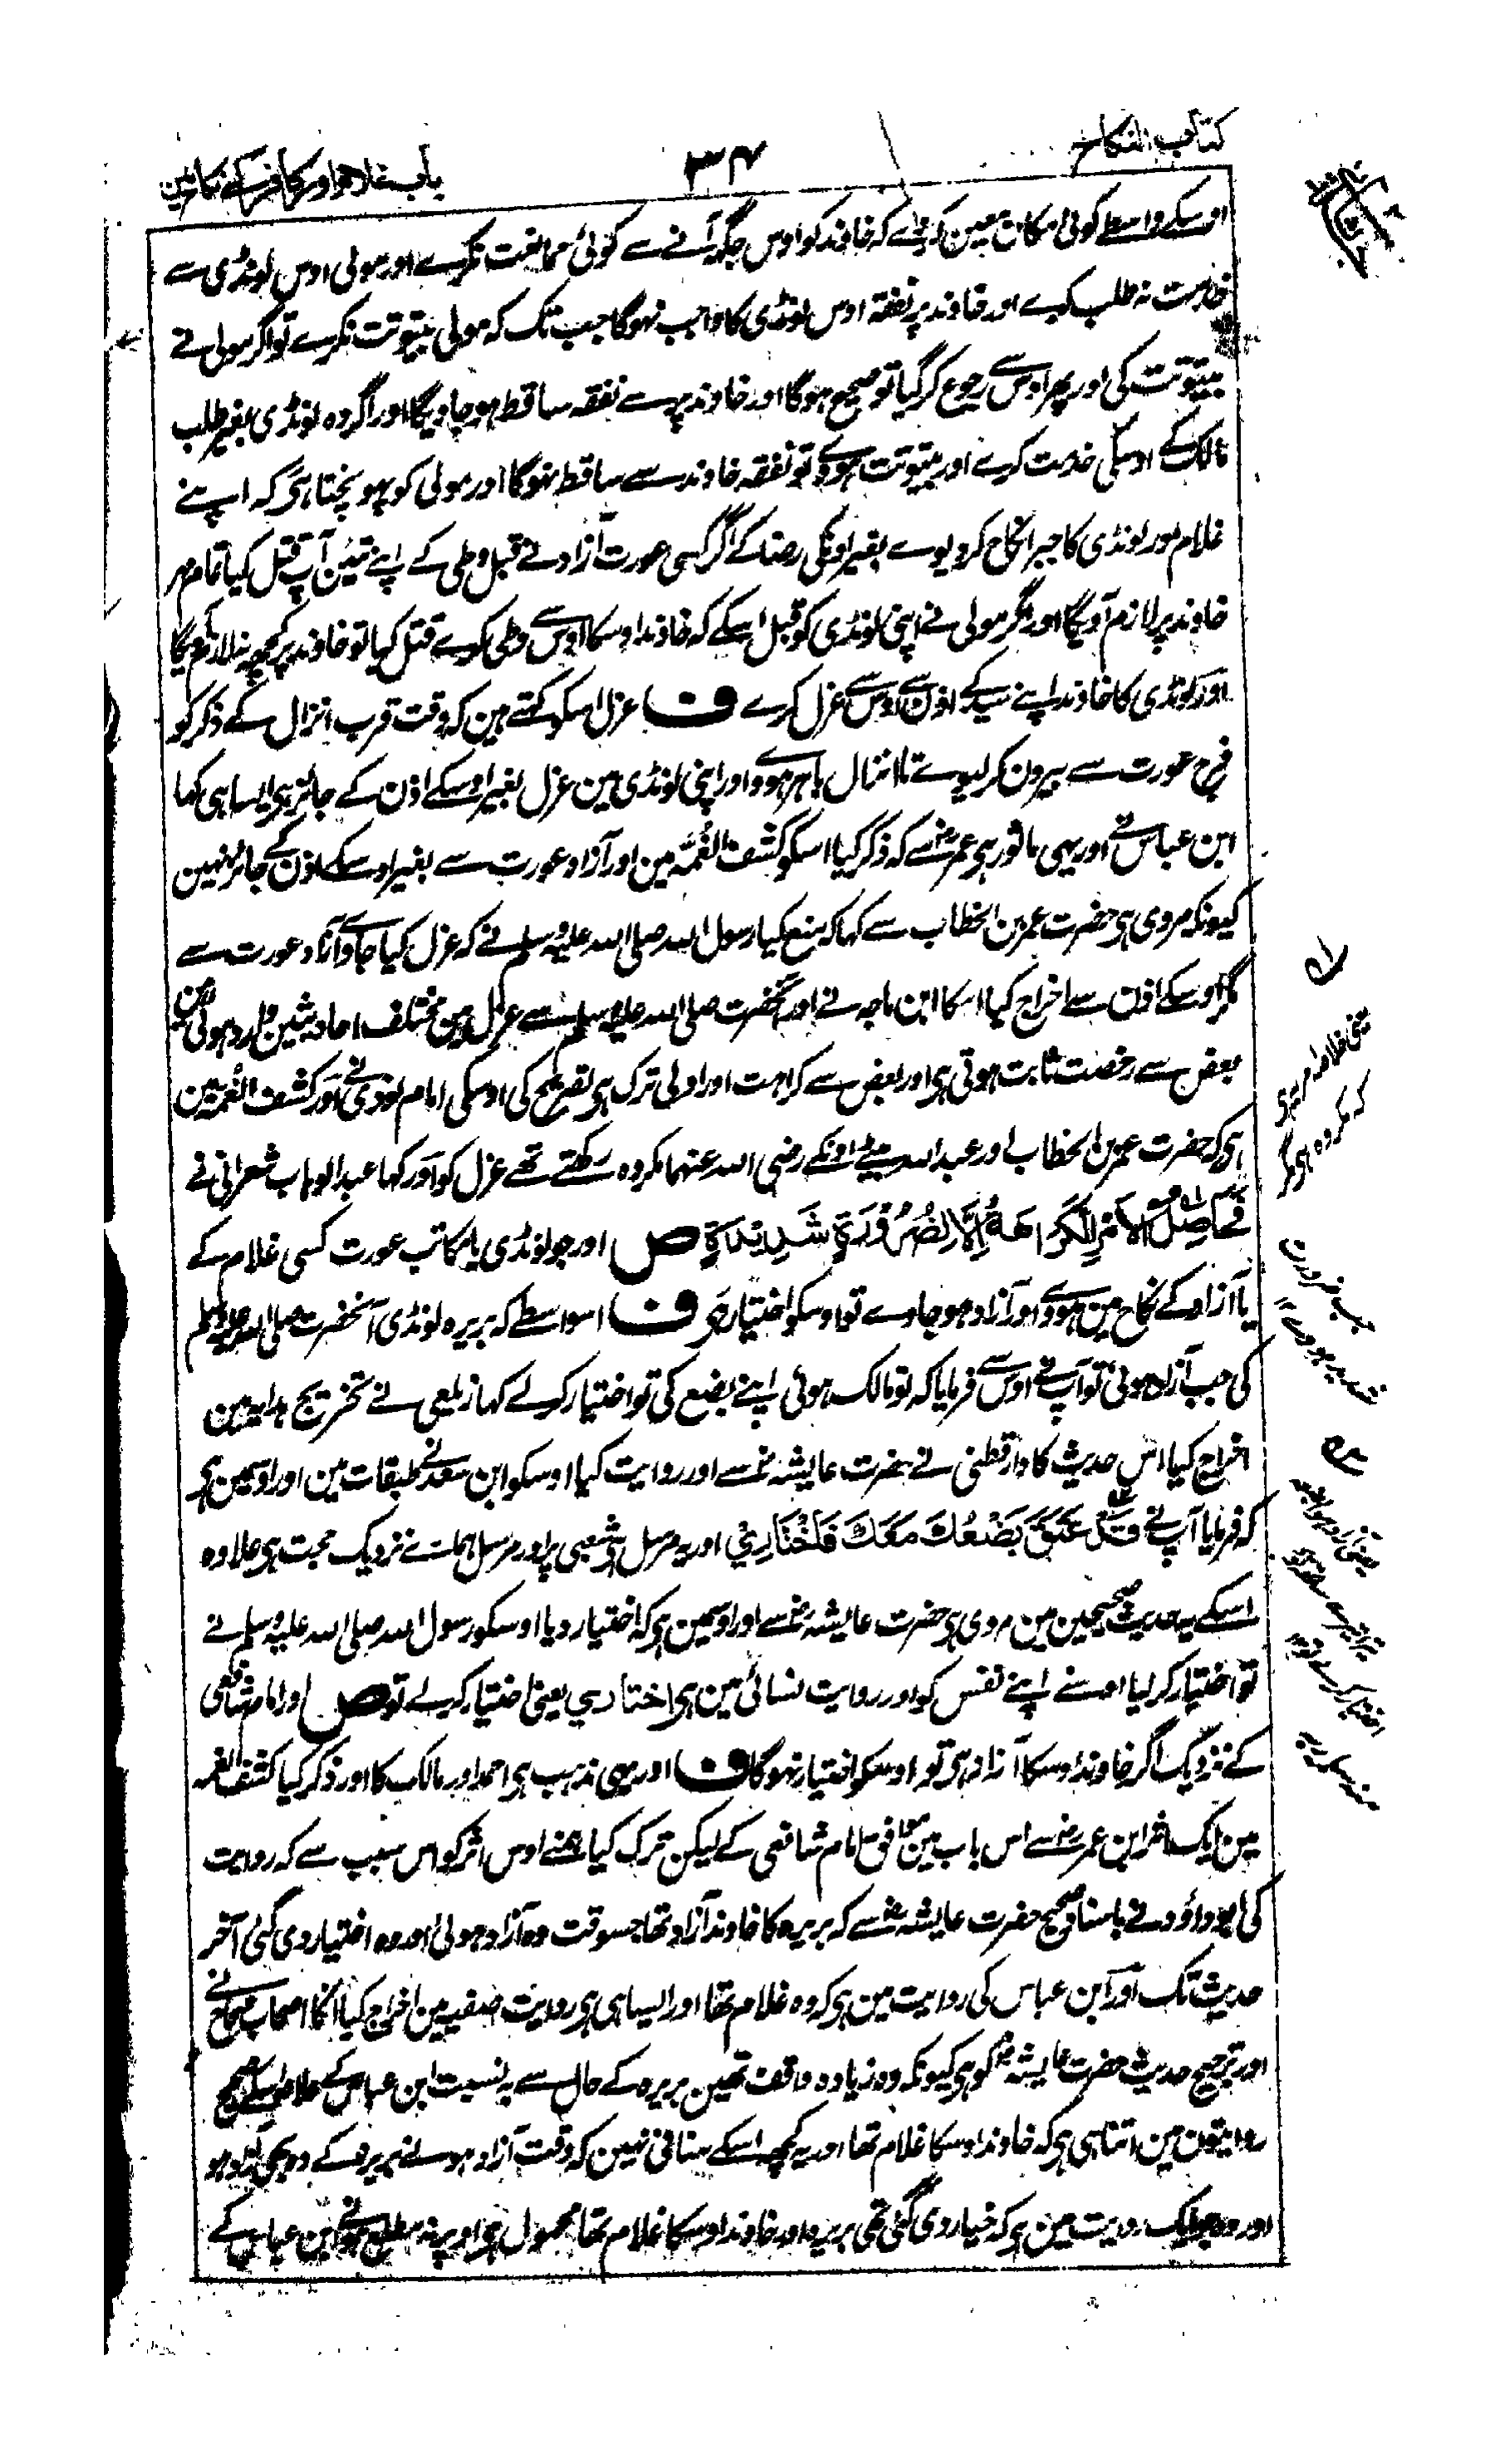 کتاب النکاح
۳۴
باب غلام اور کافر کے نکاح مین
اوسکے واسطے کوئی مکان معین کر دے کہ خاوند کو اوس جگہ آنے سے کوئی ممانعت نکرے اور مولی اوس لونڈی سے
خدمت نہ طلب کرے اور خاوند پر نفقہ اوس لونڈی کا واجب نہوگا جب تک کہ مولی بیتوتت نکرے تو اگر مولی نے
بیتوتت کی اور پھر اوس سے رجوع کر گیا تو صحیح ہوگا اور خاوند پر سے نفقہ ساقط ہو جاویگا اور اگر وہ لونڈی بغیر طلب
مالک کے اوسکی خدمت کرے اور بیتوتت ہووے تو نفقہ خاوند سے ساقط نہوگا اور مولی کو پہونچتا ہی کہ اپنے
غلام اور لونڈی کا جبرا نکاح کر دیوے بغیر اونکی رضا کے اگر کسی عورت آزاد نے قبل وطی کے اپنے تئین آپ قتل کیا تمام مہر
خاوند پر لازم آویگا اور اگر مولی نے اپنی لونڈی کو قبل اسکے کہ خاوند اوسکا اوس سے وطی کرے قتل کیا تو خاوند پر کچھ نہ لازم آویگا
اور لونڈی کا خاوند اپنے سید کے اذن سے اوس سے عزل کرے ف عزل اسکو کہتے ہین کہ وقت قرب انزال کے ذکر کو
فرج عورت سے بیرون کر لیوے تا انزال باہر ہووے اور اپنی لونڈی مین عزل بغیر اوسکے اذن کے جائز ہی ایسا ہی کہا
ابن عباس نے اور یہی ماثور ہی عمر رض سے کہ ذکر کیا اسکو کشف الغمہ مین اور آزاد عورت سے بغیر اوسکے اذن کے جائز نہین
کیونکہ مروی ہی حضرت عمر بن الخطاب سے کہا کہ منع کیا رسول اللہ صلی اللہ علیہ وسلم نے کہ عزل کیا جاوے آزاد عورت سے
مگر اوسکے اذن سے اخراج کیا اسکا ابن ماجہ نے اور آنحضرت صلی اللہ علیہ وسلم سے عزل مین مختلف احادیثین وارد ہوئی ہین
بعض سے رخصت ثابت ہوتی ہی اور بعض سے کراہت اور اولی ترک ہی تصریح کی اوسکی امام نووی نے اور کشف الغمہ مین
ہی کہ حضرت عمر بن الخطاب اور عبد اللہ بیٹے اونکے رضی اللہ عنہما مکروہ رکھتے تھے عزل کو اور کہا عبد الوہاب شعرانی نے
فَحَاصِلُ الْاَمْرِ الْکَرَاهَةُ اِلَّا لِضَرُوْرَةٍ شَدِیْدَةٍ ص اور جو لونڈی یا مکاتب عورت کسی غلام کے
یا آزاد کے نکاح مین ہووے اور آزاد ہو جاوے تو اوسکو اختیار ہی ف اسواسطے کہ بریرہ لونڈی آنحضرت صلی اللہ علیہ وسلم
کی جب آزاد ہوئی تو آپ نے اوس سے فرمایا کہ تو مالک ہوئی اپنے بضع کی تو اختیار کر لے کہا زیلعی نے تخریج ہدایہ مین
اخراج کیا اس حدیث کا دارقطنی نے حضرت عایشہ رض سے اور روایت کیا اوسکو ابن سعد نے طبقات مین اور اوسمین ہی
کہ فرمایا آپ نے قَدْ عَتَقَ بُضْعُكَ مَعَكَ فَاخْتَارِيْ اور یہ مرسل ہی شعبی پر اور مرسل ہمارے نزدیک حجت ہی علاوہ
اسکے یہ حدیث صحیحین مین مروی ہی حضرت عایشہ رض سے اور اوسمین ہی کہ اختیار دیا اوسکو رسول اللہ صلی اللہ علیہ وسلم نے
تو اختیار کر لیا اوسنے اپنے نفس کو اور روایت نسائی مین ہی اختاري یعنی اختیار کر لے تو ص اور امام شافعی
کے نزدیک اگر خاوند اوسکا آزاد ہی تو اوسکو اختیار نہوگا ف اور یہی مذہب ہی احمد اور مالک کا اور ذکر کیا کشف الغمہ
مین ایک اثر ابن عمر رض سے اس باب مین موافق امام شافعی کے لیکن ترک کیا ہمنے اوس اثر کو اس سبب سے کہ روایت
کی ابو داؤد نے باسناد صحیح حضرت عایشہ رض سے کہ بریرہ کا خاوند آزاد تھا جسوقت وہ آزاد ہوئی اور وہ اختیار دی گئی آخر
حدیث تک اور ابن عباس کی روایت مین ہی کہ وہ غلام تھا اور ایسا ہی ہی روایت صفیہ مین اخراج کیا انکا اصحاب صحاح نے
اور ترجیح حدیث حضرت عایشہ رض کو ہی کیونکہ وہ زیادہ واقف تھین بریرہ کے حال سے بہ نسبت ابن عباس کے علاوہ اسکے صحیح
روایتون مین اتنا ہی ہی کہ خاوند اوسکا غلام تھا اور یہ کچھ اسکے منافی نہین کہ وقت آزاد ہونے بریرہ کے وہ بھی آزاد ہو
اور وہ جو ایک روایت مین ہی کہ خیار دی گئی تھی بریرہ اور خاوند اوسکا غلام تھا محمول ہی اوپر نہ مطلع ہونے ابن عباس کے
یعنی خلاصہ امر یہ ہی
کہ مکروہ ہی مگر
جب ضرورت
شدید ہووے ۱۲